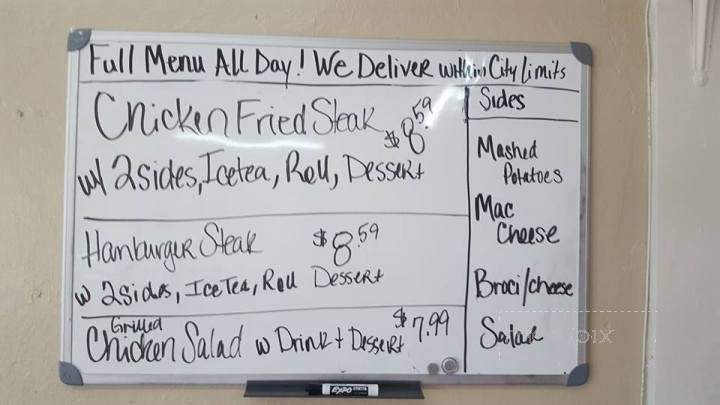 Full Menu All Day! We Deliver within City Limits
Chicken Fried Steak $8.59
w/ 2 sides, Icetea, Roll, Dessert
Hamburger Steak $8.59
w 2 sides, Ice Tea, Roll Dessert
Grilled
Chicken Salad w Drink + Dessert $7.99
Sides
Mashed
Potatoes
Mac
Cheese
Broci/cheese
Salad
EXPO